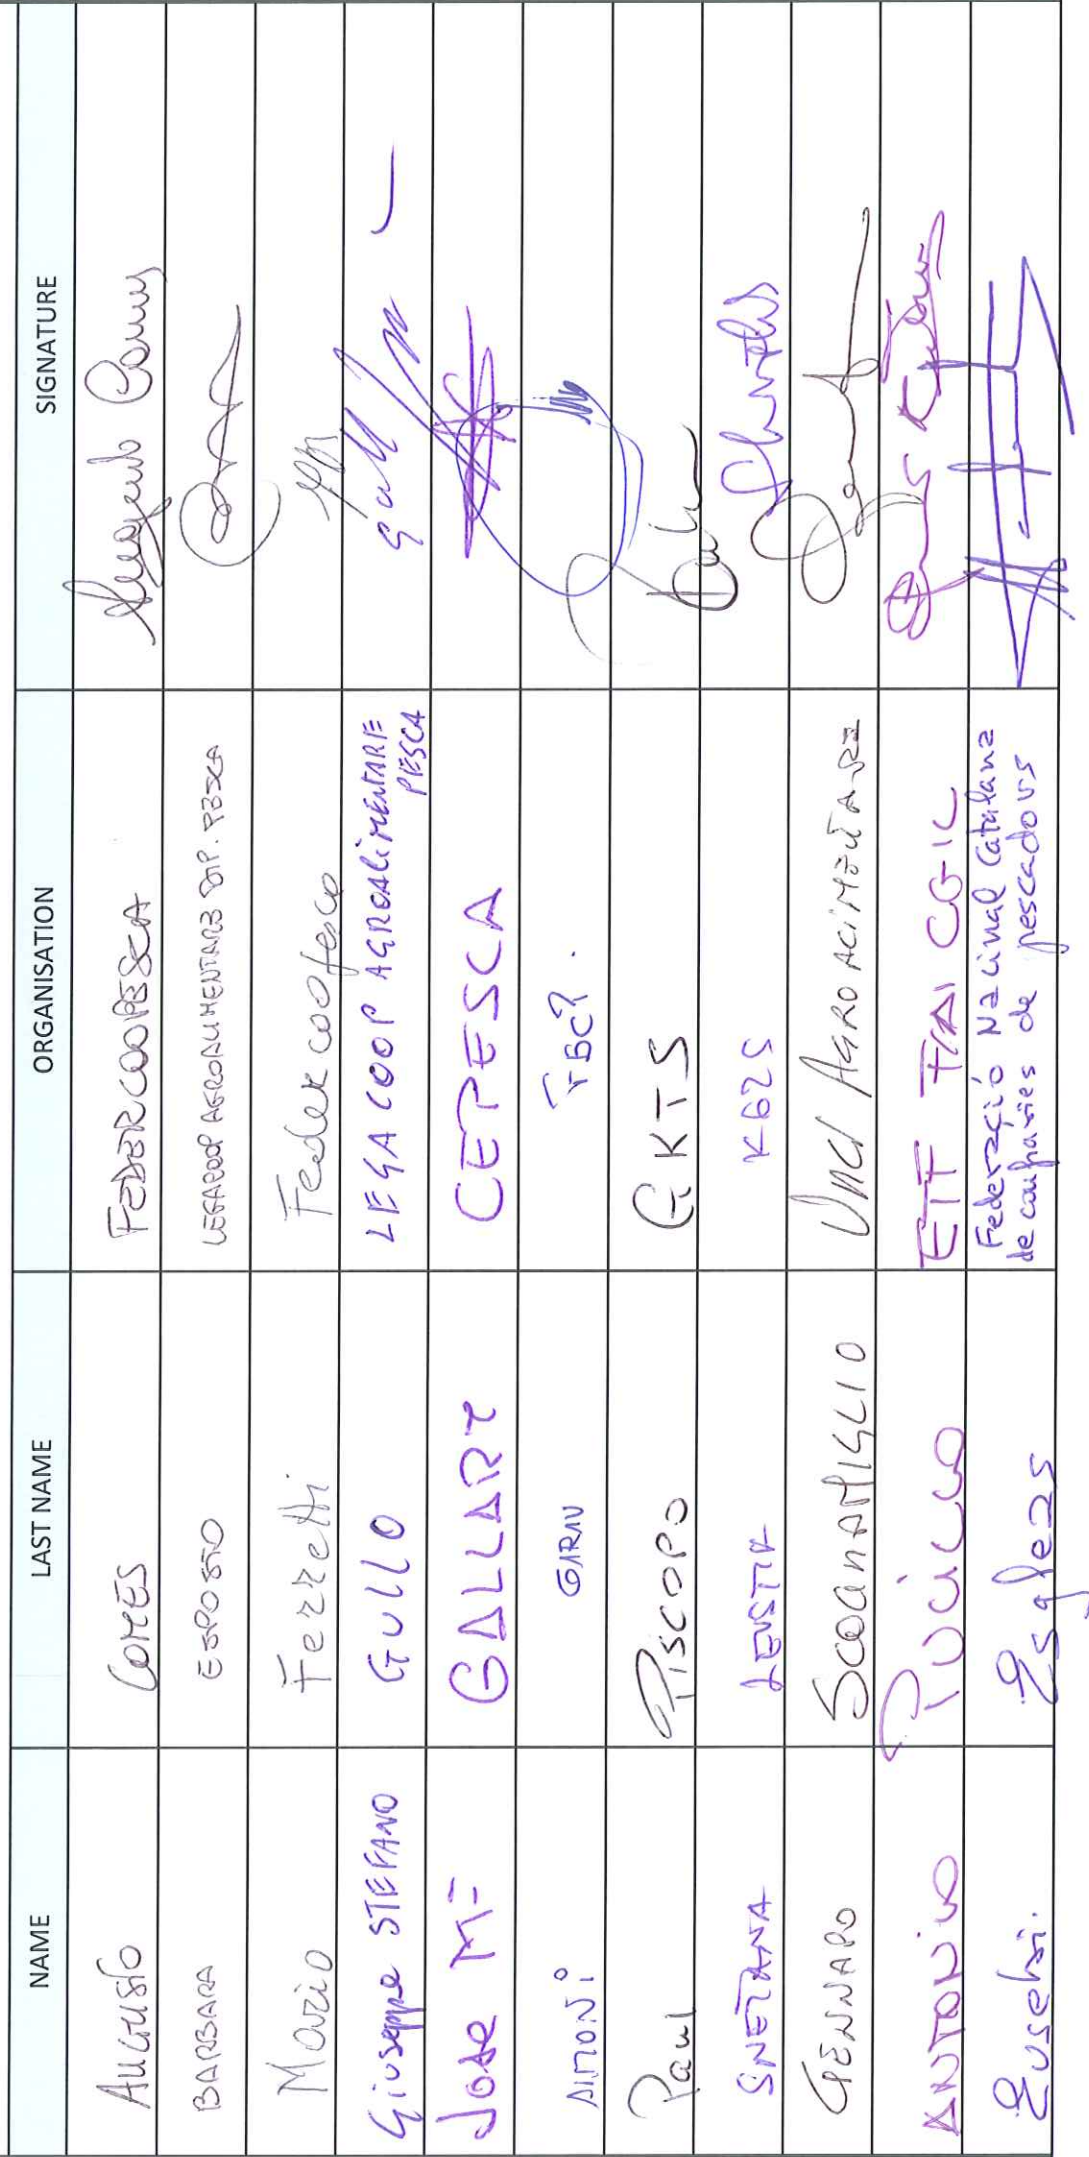 NAME LAST NAME ORGANISATION SIGNATURE
AUGUSTO COMES FEDERCOOPESCA
BARBARA ESPOSITO LEGACOOP AGROALIMENTARE DIP. PESCA
Mario Ferretti Federcoopesca
Giuseppe STEFANO GULLO LEGA COOP AGROALIMENTARE
PESCA
Jose Mª GALLART CEPESCA
ANTONI GARAU
Paul PISCOPO GKTS
SNETZANA LEVSTIK KGZS
GENNARO SCOGNAMIGLIO UNCI AGROALIMENTARE
ANTONIO PUCILLO ETF FLAI CGIL
Eusebi. Esgleas Federació Nacional Catalana
de confraries de pescadors